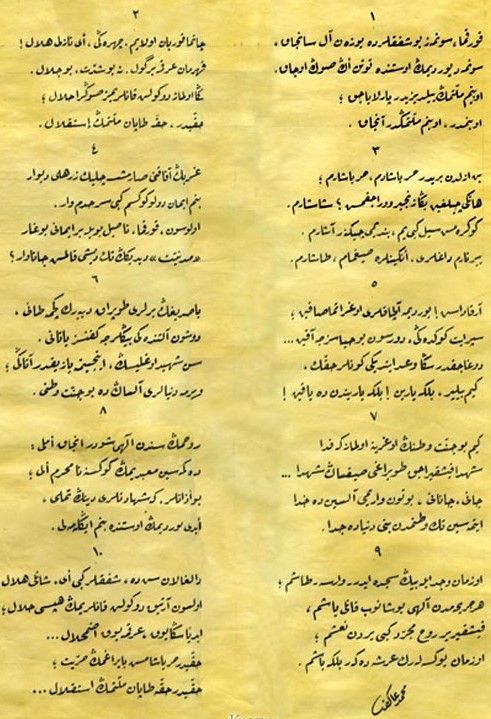 ١
قورقما، سونمز بو شفقلرده يوزن آل سانجاق،
سونمه‌دن يورديمڭ اوستنده توتن اڭ صوڭ اوجاق.
او بنم ملتمڭ ييلديزيدر پارلاياجق؛
او بنمدر، او بنم ملتمڭدر آنجاق.
٢
چاتما قوربان اولايم، چهره‌ڭی، ای نازلی هلال!
قهرمان عرقمه بر گول.. نه بو شدت، بو جلال.
سڭا اولماز دوكولن قانلريمز صوڭرا حلال؛
حقيدر، حقه طاپان ملتمڭ استقلال.
٣
بن ازلدن بريدر حر ياشادم، حر ياشارم؛
هانگی چيلغين بڭا زنجير ووراجقمش؟ شاشارم.
كوكره‌مش سيل كبی‌يم، بندمی چيكنر آشارم.
ييرتارم داغلری، انگينلره صيغمام، طاشارم.
٤
غربڭ آفاقنی صارمشسه چليك زرهلی ديوار
بنم ايمان دولو كوكسم كبی سرحدم وار.
اولوسون، قورقما، ناصل بويله بر ايمانی بوغار
«مدنيت» ديديكڭ تك ديشی قالمش جاناوار؟
٥
آرقداش! يورديمه آلچاقلری اوغراتما صاقين؛
سپر ايت كوكده‌ڭی، دورسون بو حياسزجه آقين...
دوغاجقدر سڭا وعد ايتديكی كونلر حقڭ،
كيم بيلير، بلكه يارين! بلكه ياريندن ده ياقين!
٦
باصديغڭ يرلری طوپراق ديه‌رك كچمه طانی،
دوشون آلتنده‌كی بيڭلرجه كفنسز ياتانی.
سن شهيد اوغليسڭ، اينجيتمه يازيقدر آتاڭی؛
ويرمه دنيالری آلسه‌ڭ ده بو جنت وطنی.
٧
كيم بو جنت وطنڭ اوغرينه اولماز كه فدا
شهدا فيشقيراجق طوپراغی صيقسه‌ڭ شهدا...
جانی، جانانی، بوتون واريمی آلسين ده خدا
ايتمه‌سين تك وطنمدن بنی دنياده جدا.
٨
روحمڭ سندن الهی شودر آنجاق املی:
دكمه‌سين معبديمڭ كوكسنه نامحرم الی؛
بو اذانلر، كه شهادتلری دينڭ تملی،
ابدی يورديمڭ اوستنده بنم ايڭله‌ملی.
٩
او زمان وجد ايله بيڭ سجده ايدر وارسه طاشم؛
هر جريحه‌مدن الهی بوشانوب قانلی ياشم،
فيشقيرير روح مجرد كبی يردن نعشم؛
او زمان يوكسه‌لرك عرشه دكر بلكه باشم.
١٠
دالغالان سن ده، شفقلر كبی ای شانلی هلال
اولسون آرتيق دوكولن قانلريمڭ هپسی حلال؛
ابديا سڭا يوق، عرقمه يوق اضمحلال...
حقيدر حر ياشامش بايراغمڭ حريت؛
حقيدر حقه طاپان ملتمڭ استقلال...
محمد عاكف